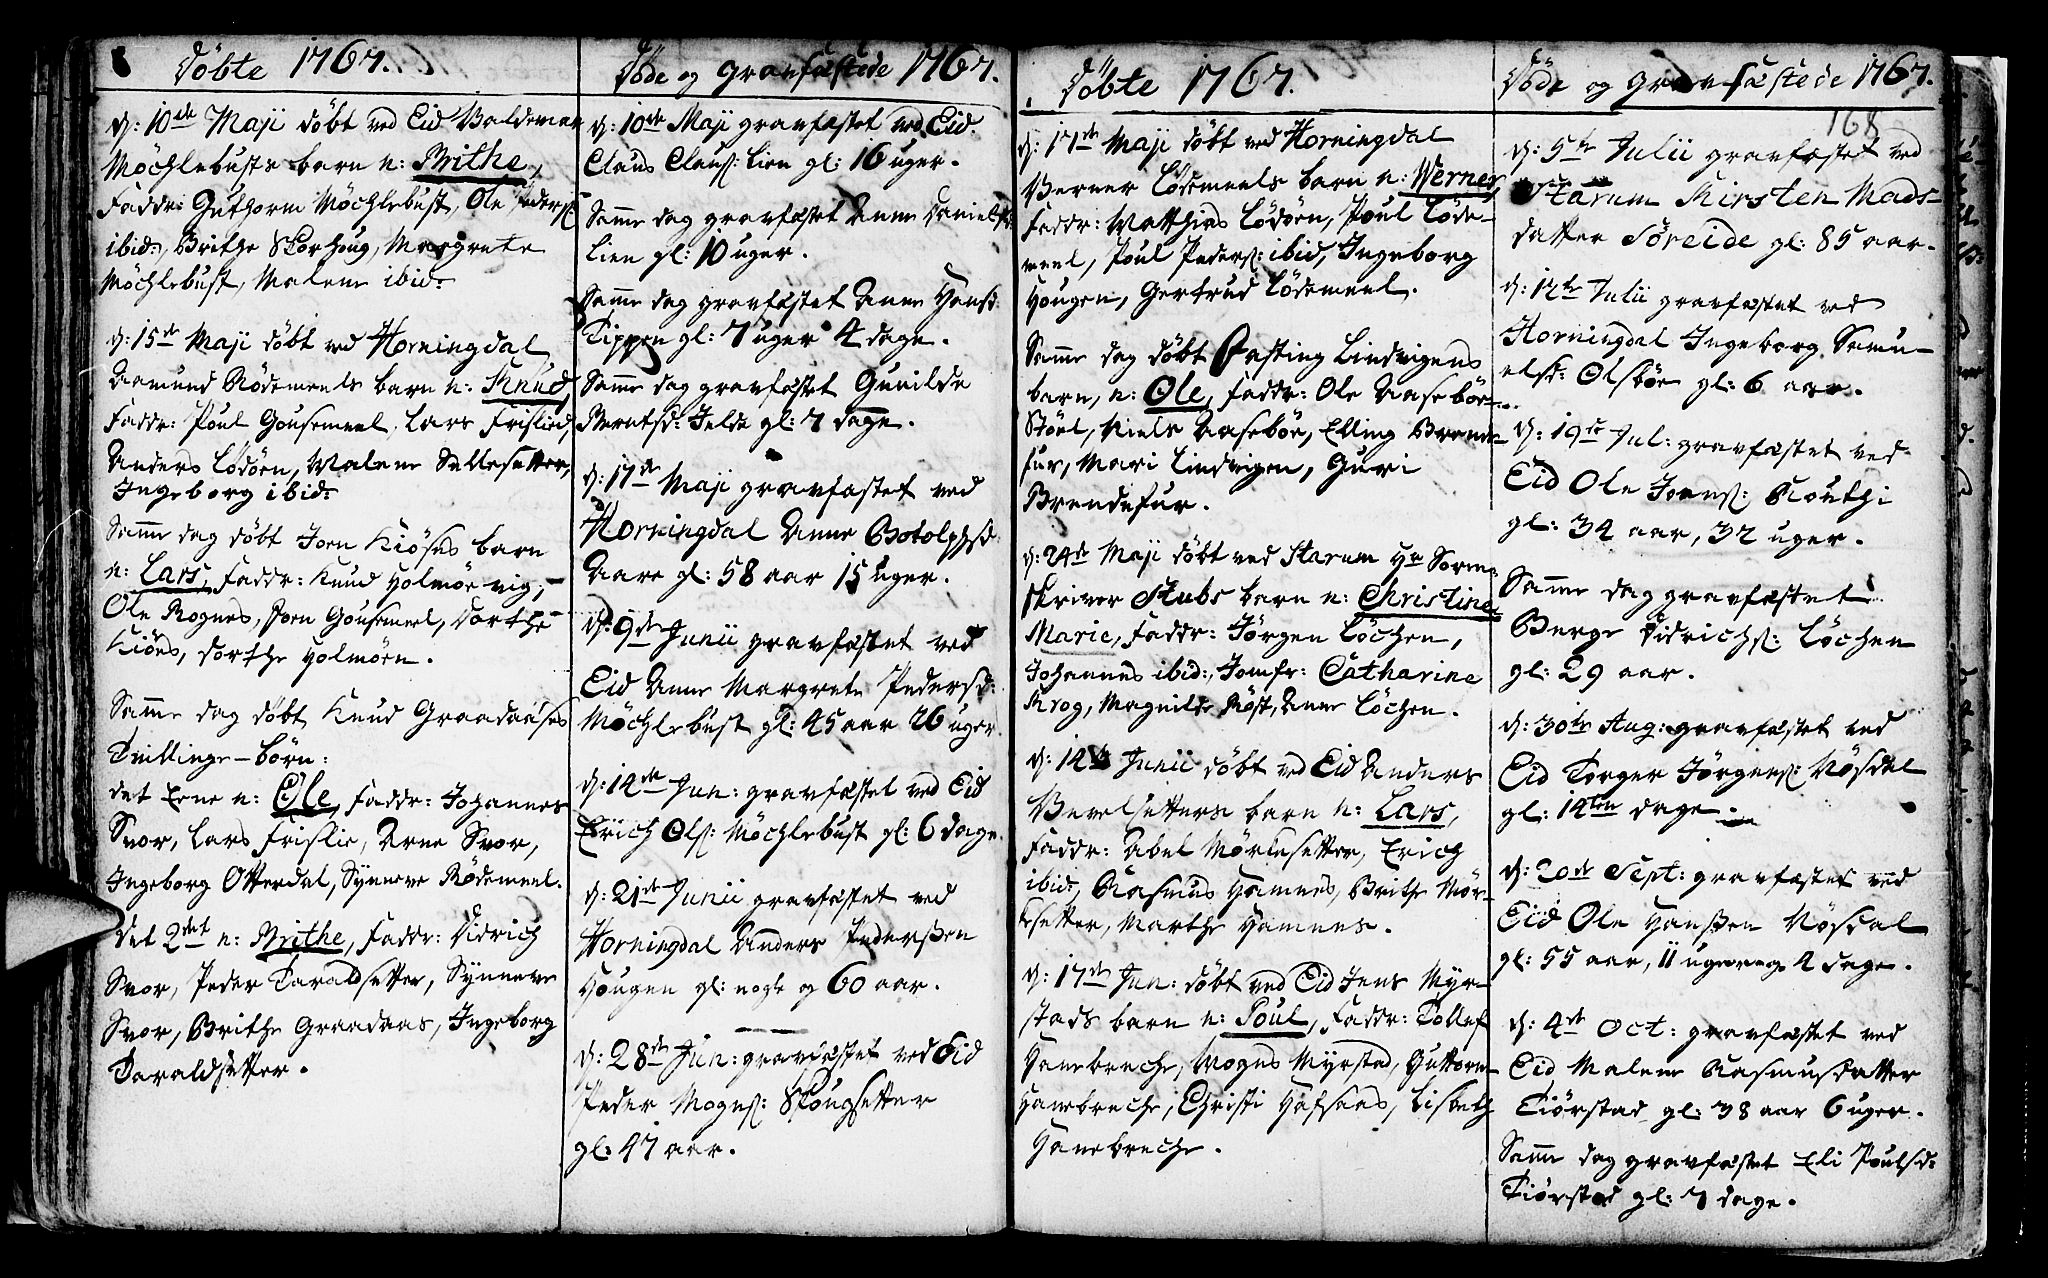 Döbte 1767.
d: 10de Maji döbt ved Eid Baldemar
Möchlebusts barn n: Brithe,
Faddr: Guthorm Möchlebust, Ole Peders:
ibid:, Brithe Skorhoug, Margrete
Möchlebust, Malene ibid:
d: 15de Maji döbt ved Horningdal
Aamund Rödemeels barn n: Knud,
Faddr: Poul Gousemeel, Lars Frislied,
Anders Lödöen, Malene Sællesetter,
Ingeborg ibid:
Samme dag döbt Joen Kiöses barn
n: Lars, Faddr: Knud Holmöe vig,
Ole Rognes, Joen Gousemeel, Dorthe
Kiöes, Dorthe Holmöen.
Samme dag döbt Knud Graadaases
Tvillinge-börn:
det Eene n: Ole, Faddr: Johannes
Svor, Lars Frislie, Arne Svor,
Ingeborg Otterdal, Synneve Rödemeel.
Det 2det n: Brithe, Faddr: Didrich
Svor, Peder Taraldsetter, Synneve
Svor, Brithe Graadaas, Ingeborg
Taraldsetter.
Döde og Gravfæstede 1767.
d: 10de Maji gravfæstet ved Eid
Claus Claus: Lien gl: 16 uger.
Samme dag gravfæstet Anne Danielsd:
Lien gl: 10 uger.
Samme dag gravfæstet Anne Hansd:
Tippen gl: 7 uger 4 dage.
Samme dag gravfæstet Gunilde
Berntsd: Jelde gl: 7 dage.
d: 17de Maji gravfæstet ved
Horningdal Anne Botolphsd:
Aare gl: 58 aar 15 uger.
d: 9de Junii gravfæstet ved
Eid Anne Margrete Pedersd:
Möchlebust gl: 45 aar 26 uger.
d: 14de Jun: gravfæstet ved Eid
Erich Ols: Möchlebust gl: 6 dage.
d: 21de Junii gravfæstet ved
Horningdal Anders Pederssen
Hougen gl: nogle og 60 aar.
d: 28de Jun: gravfæstet ved Eid
Peder Mogens: Skougsetter
gl: 47 aar.
Döbte 1767.
d: 17de Maji döbt ved Horningdal
Verner Lödemeels barn n: Werner,
Faddr: Matthias Lödöen, Poul Löde-
meel, Poul Peders: ibid, Ingeborg
Hougen, Gertrud Lödemeel.
Samme dag döbt Fasting Lindvigens
barn, n: Ole, Faddr: Ole Aasebö
Stöel, Niels Aaseböe, Elling Brende-
fur, Mari Lindvigen, Guri
Brendefur.
d: 24de Maji döbt ved Starum Hr Soren-
skriver Stubs barn n: Christine
Marie, Faddr: Jörgen Löchen,
Johannes ibid:, Jomfr: Catharine
Krog, Magnilde Röst, Anne Löchen.
d: 14de Junii döbt ved Eid Anders
Bevelsetters barn n: Lars,
Faddr: Abel Mörkesetter, Erich
ibid:, Rasmus Hamnes, Brithe Mör-
kesetter, Marthe Hamnes.
d: 17de Jun: döbt ved Eid Jens Myr-
stads barn n: Poul, Faddr: Tollef
Hanebreche, Mogns Myrstad, Guttorm
Hanebreche, Christi Hafsaas, Lisbeth
Hanebreche.
Döde og Gravfæstede 1767.
168
d: 5te Julii gravfæstet ved
Starum Kirsten Mads-
datter Söreide gl: 85 aar.
d: 12te Julii gravfæstet ved
Horningdal Ingeborg Samu-
elsd: Olsböe gl: 6 aar.
d: 19de Jul: gravfæstet ved
Eid Ole Joens: Routhi
gl: 34 aar, 32 uger.
Samme dag gravfæstet
Berge Didrichs: Löchen
gl: 29 aar.
d: 30te Aug: gravfæstet ved
Eid Torger Jörgens: Nösdal
gl: 14ten dage.
d: 20de Sept: gravfæstet ved
Eid Ole Hanssen Nösdal
gl: 55 aar, 11 uger 4 dage.
d: 4de Oct: gravfæstet ved
Eid Malene Rasmusdatter
Tiörstad gl: 38 aar 6 uger.
Samme dag gravfæstet Eli Poulsd:
Tiörstad gl: 7 dage.